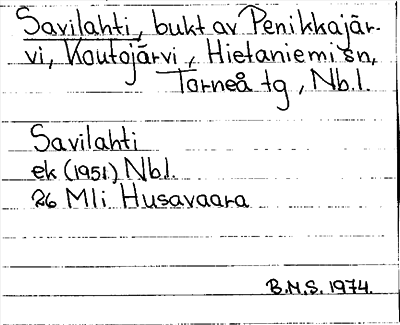 Savilahti, bukt av Penikkajär-
vi, Koutojärvi, Hietaniemi sn,
Torneå tg, Nb.l.
Savilahti
ek (1951) Nbl.
26 Mli Husavaara
B.M.S. 1974.